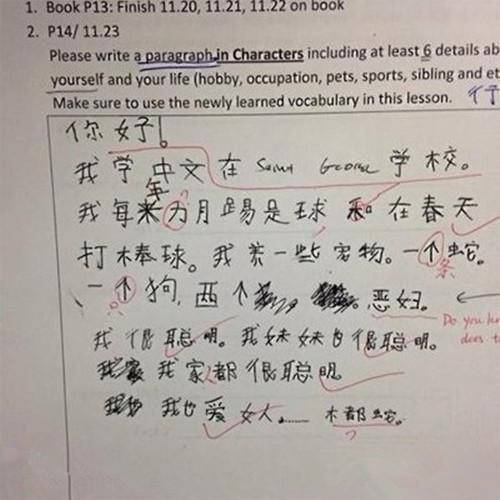 1. Book P13: Finish 11.20, 11.21, 11.22 on book
2. P14/ 11.23
Please write a paragraph in Characters including at least 6 details ab
yourself and your life (hobby, occupation, pets, sports, sibling and et
Make sure to use the newly learned vocabulary in this lesson.
你好!
我学中文在 Saint George 学校。
我每年 为月踢是球和在春天
打棒球。我养一些宠物。一个蛇。
条
一个狗,两个恶妇。
Do you
does
我很聪明。我妹妹也很聪明。
我家都很聪明。
我也爱女人…… 木都蛇。